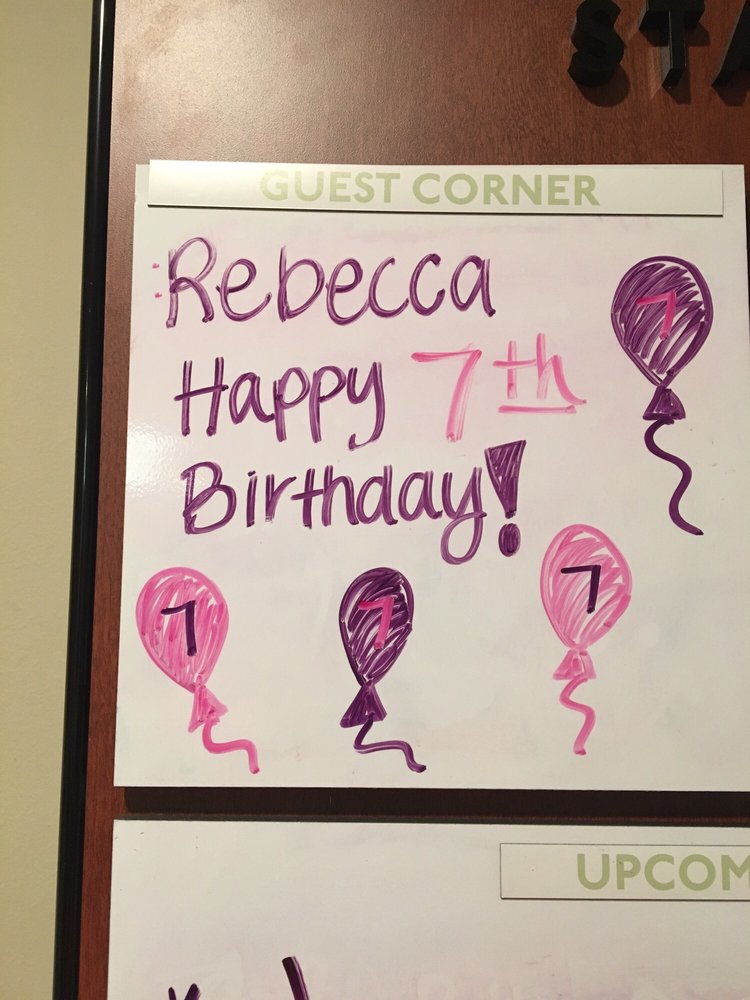 STA
GUEST CORNER
Rebecca
Happy 7th
Birthday!
7
7
7
7
UPCOM